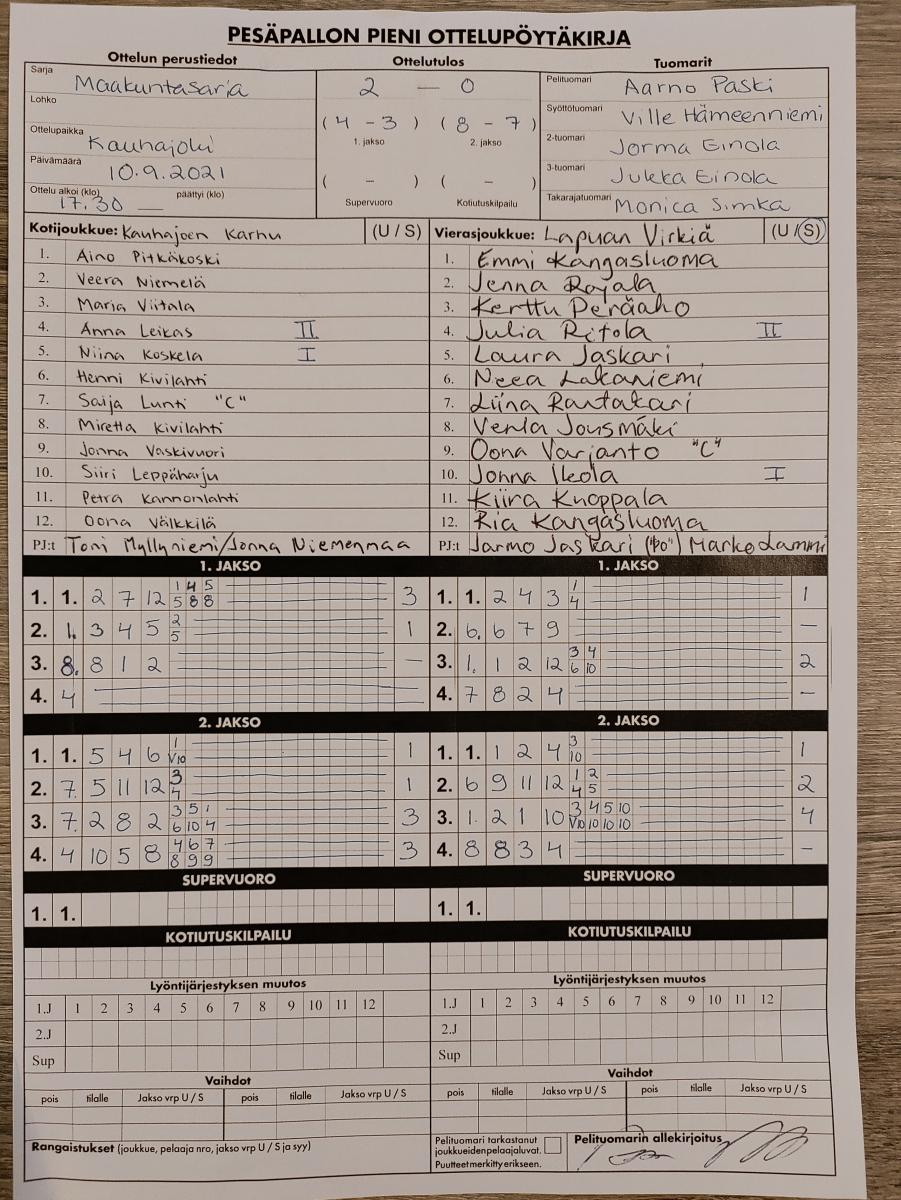 PESÄPALLON PIENI OTTELUPÖYTÄKIRJA
Ottelun perustiedot Ottelutulos Tuomarit
Sarja Maakuntasarja
Lohko
Ottelupaikka Kauhajoki
Päivämäärä 10.9.2021
Ottelu alkoi (klo) 17.30 päättyi (klo) —
2 — 0
( 4 - 3 ) ( 8 - 7 )
1. jakso 2. jakso
( - ) ( - )
Supervuoro Kotiutuskilpailu
Pelituomari Aarno Paski
Syöttötuomari Ville Hämeenniemi
2-tuomari Jorma Einola
3-tuomari Jukka Einola
Takarajatuomari Monica Simka
Kotijoukkue: Kauhajoen Karhu (U / S)
1. Aino Pitkäkoski
2. Veera Niemelä
3. Maria Viitala
4. Anna Leikas II
5. Niina Koskela I
6. Henni Kivilahti
7. Saija Lunti "C"
8. Miretta Kivilahti
9. Jonna Vaskivuori
10. Siiri Leppäharju
11. Petra Kannonlahti
12. Oona Välkkilä
PJ:t Toni Myllyniemi/Jonna Niemenmaa
Vierasjoukkue: Lapuan Virkiä (U / S)
1. Emmi Kangasluoma
2. Jenna Rajala
3. Kerttu Peräaho
4. Julia Ritola II
5. Laura Jaskari
6. Neea Lakaniemi
7. Liina Rantakari
8. Venla Jousmäki
9. Oona Varjanto "C"
10. Jonna Ikola I
11. Kiira Knoppala
12. Ria Kangasluoma
PJ:t Jarmo Jaskari ("po") Marko Lammi
1. JAKSO
1. 1. 2 7 12 1 4 5 3
5 8 8
2. 1. 3 4 5 2 1
5
3. 8. 8 1 2 —
4. 4
1. JAKSO
1. 1. 2 4 3 1 1
4
2. 6. 6 7 9 —
3. 1. 1 2 12 3 4 2
6 10
4. 7 8 2 4 -
2. JAKSO
1. 1. 5 4 6 1 1
V10
2. 7. 5 11 12 3 1
4
3. 7. 2 8 2 3 5 1 3
6 10 4
4. 4 10 5 8 4 6 7 3
8 9 9
2. JAKSO
1. 1. 1 2 4 3 1
10
2. 6 9 11 12 1 2 2
4 5
3. 1. 2 1 10 3 4 5 10 4
V10 10 10 10
4. 8 8 3 4 -
SUPERVUORO SUPERVUORO
1. 1. 1. 1.
KOTIUTUSKILPAILU KOTIUTUSKILPAILU
Lyöntijärjestyksen muutos Lyöntijärjestyksen muutos
1.J 1 2 3 4 5 6 7 8 9 10 11 12 1.J 1 2 3 4 5 6 7 8 9 10 11 12
2.J 2.J
Sup Sup
Vaihdot Vaihdot
pois tilalle Jakso vrp U / S pois tilalle Jakso vrp U / S pois tilalle Jakso vrp U / S pois tilalle Jakso vrp U / S
Rangaistukset (joukkue, pelaaja nro, jakso vrp U / S ja syy)
Pelituomari tarkastanut
joukkueiden pelaajaluvat.
Puutteet merkitty erikseen.
Pelituomarin allekirjoitus